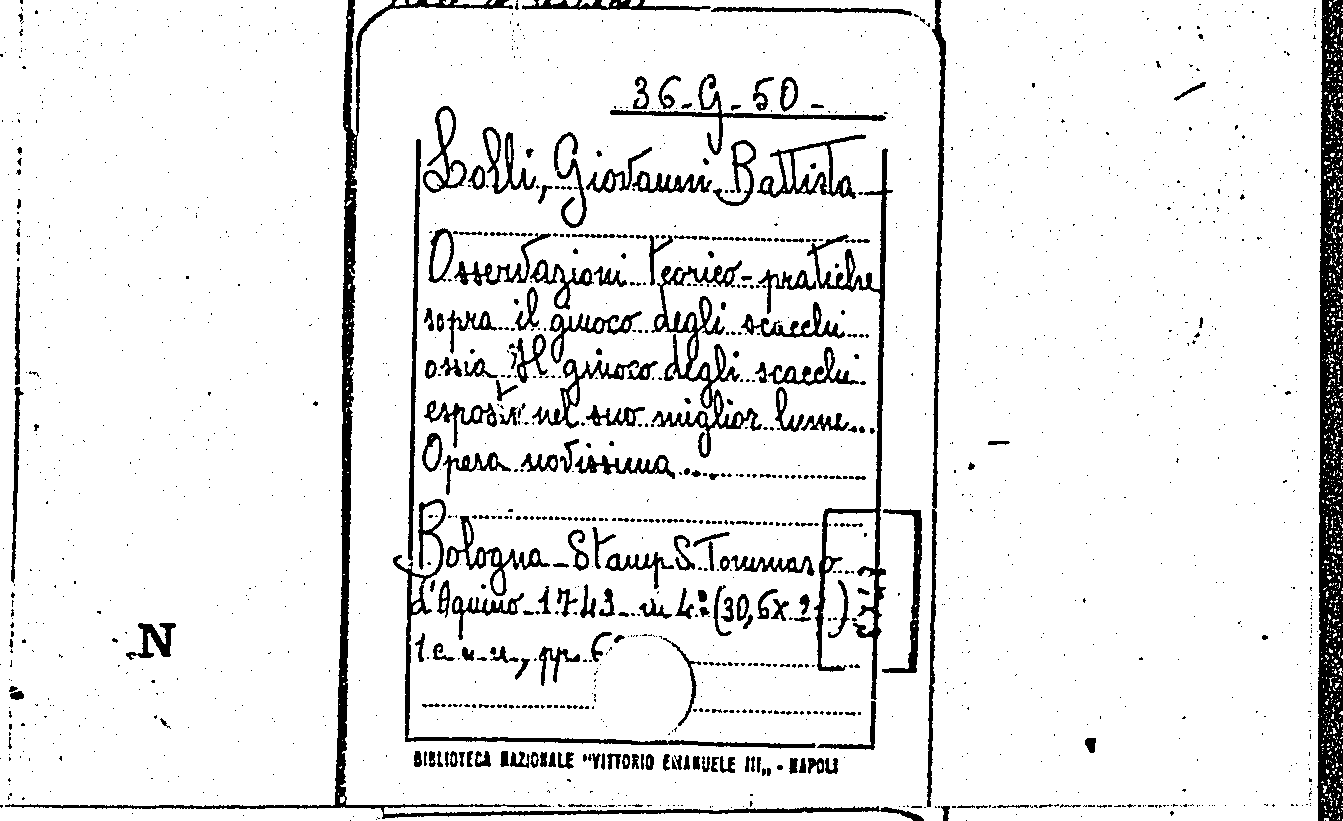 36-G-50-
Lolli, Giovanni Battista
Osservazioni teorico-pratiche
sopra il giuoco degli scacchi
ossia Il giuoco degli scacchi
esposto nel suo miglior lume...
Opera novissima...
Bologna - Stamp S. Tommaso
d'Aquino - 1743 - in 4º (30,6x2
1 c. n. n., pp. 6
N
BIBLIOTECA NAZIONALE "VITTORIO EMANUELE III„ - NAPOLI